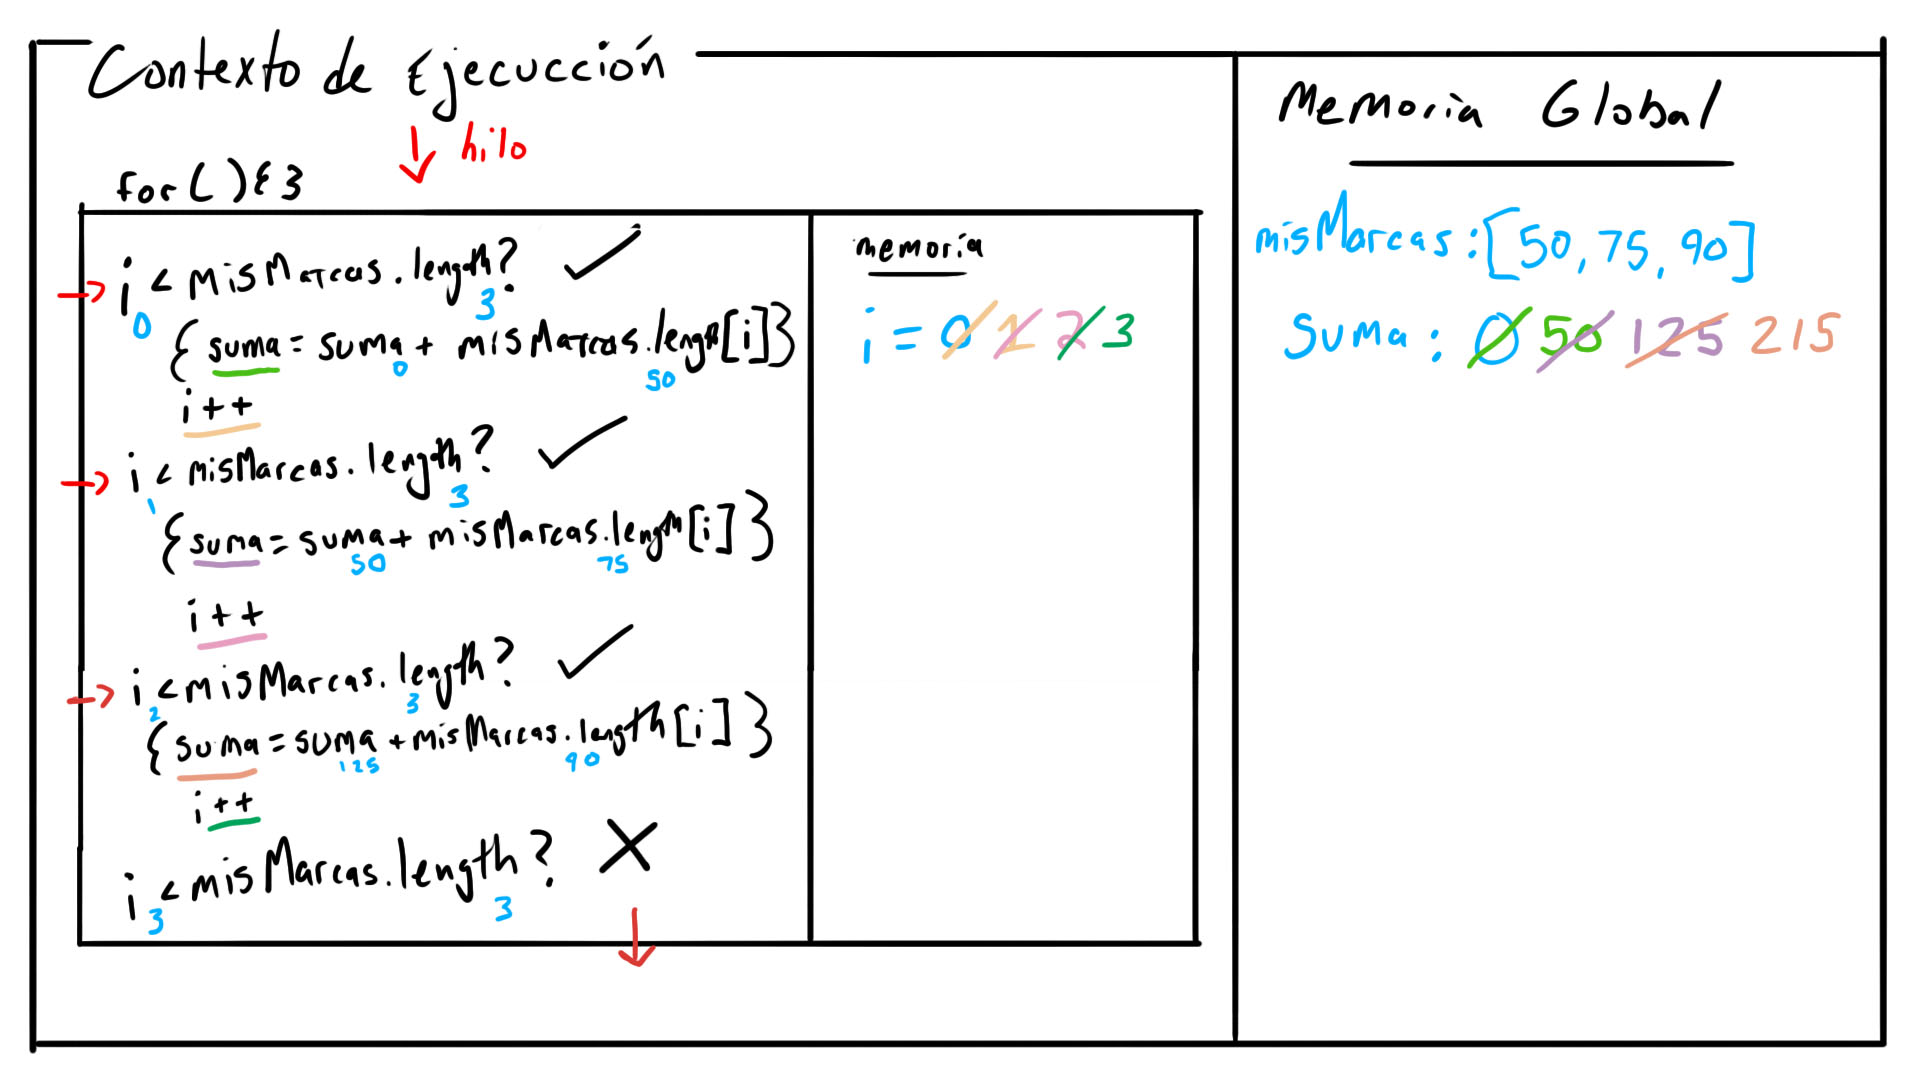 Contexto de Ejecucción
hilo
for ( ) { }
i < misMarcas.length?
0
3
{ suma = suma + misMarcas.length[i] }
0
50
i++
i < misMarcas.length?
1
3
{ suma = suma + misMarcas.length[i] }
50
75
i++
i < misMarcas.length?
2
3
{ suma = suma + misMarcas.length[i] }
125
90
i++
i < misMarcas.length?
3
3
memoria
i = 0 1 2 3
Memoria Global
misMarcas: [50, 75, 90]
Suma: 0 50 125 215